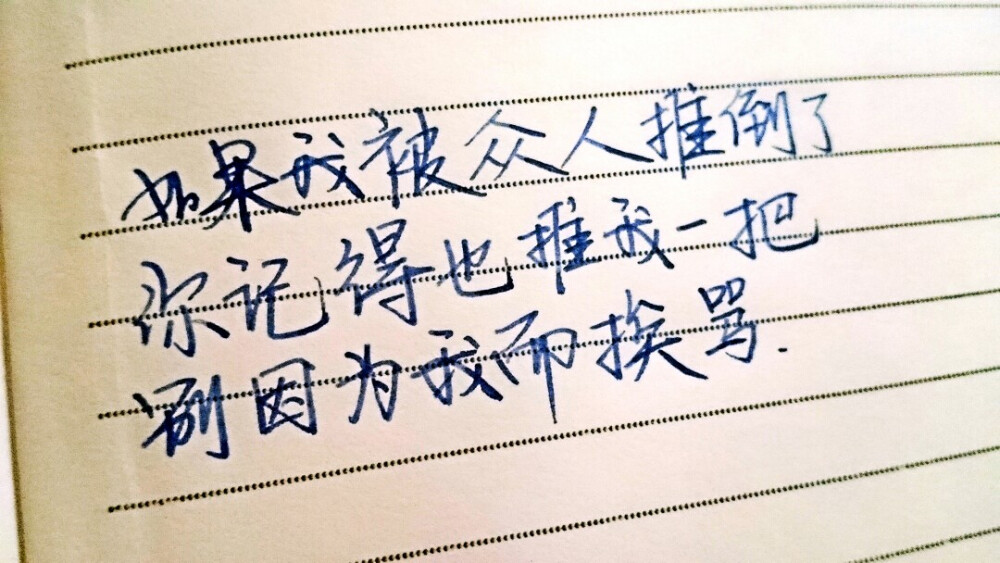 如果我被众人推倒了
你记得也推我一把
别因为我而挨骂.